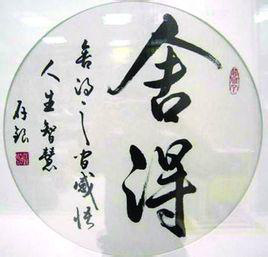 舍得
舍得之间感悟
人生智慧